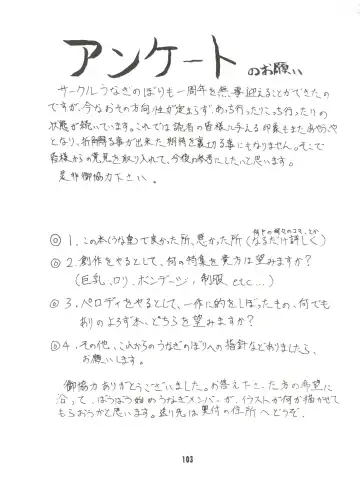 アンケート のお願い
サークルうなぎのぼりも一周年を無事迎えることができたの
ですが、今なおその方向性が定まらず、あっち行ったりこっち行ったりの
状態が続いています。これでは読者の皆様に与える印象もまたあやふや
となり、折角贔屓が出来た期待を裏切る事にもなりません。そこで
皆様からの意見を取り入れて、今後の参考にしたいと思います。
是非御協力下さい。
◎1. この本(うな重)で良かった所、悪かった所(なるだけ詳しく)
◎2. 創作をやるとして、何の特集を貴方は望みますか?
(巨乳、ロリ、ボンデージ、制服 etc...)
◎3. パロディをやるとして、一作に的をしぼったもの、何でも
ありのよろず本、どちらを望みますか?
◎4. その他、これからのうなぎのぼりへの指針などありましたら、
お願いします。
御協力ありがとうございました。お答え下さった方の希望に
沿って、ぼうぼう始めうなぎメンバーが、イラストか何か描かせて
もらおうかと思います。送り先は奥付の住所へどうぞ。
103